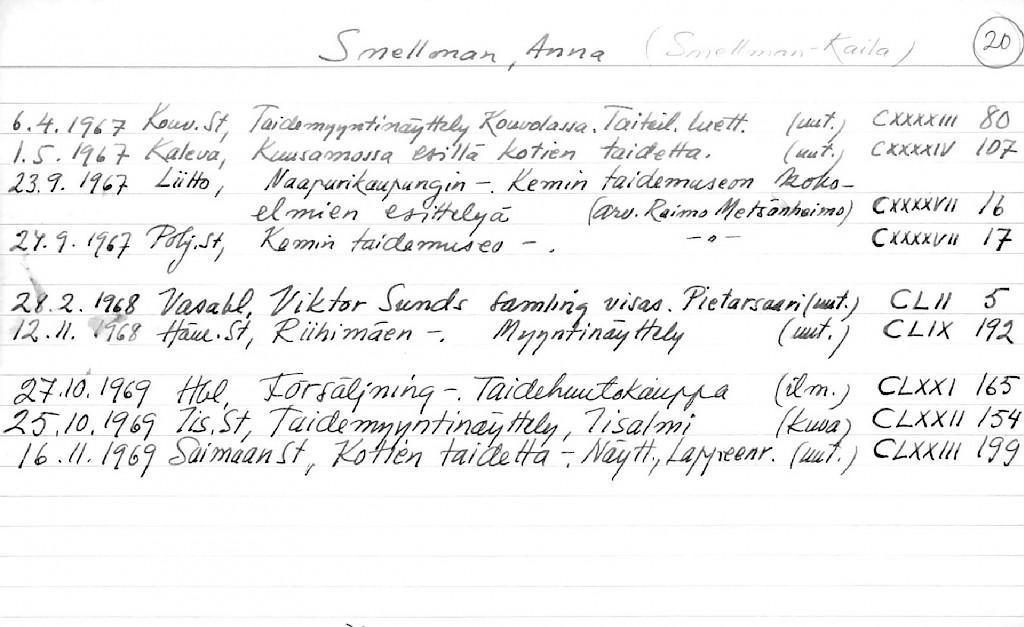 Snellman, Anna (Snellman-Kaila) 20
6.4.1967 Kouv.St, Taidemyyntinäyttely Kouvolassa. Taiteil. luett. (uut.) CXXXXIII 80
1.5.1967 Kaleva, Kuusamossa esillä kotien taidetta. (uut.) CXXXXIV 107
23.9.1967 Liitto, Naapurikaupungin -. Kemin taidemuseon koko-
elmien esittelyä (arv. Raimo Metsänheimo) CXXXXVII 16
24.9.1967 Pohj.St, Kemin taidemuseo -. -"- CXXXXVII 17
28.2.1968 Vasabl, Viktor Sunds samling visas. Pietarsaari (uut.) CLII 5
12.11.1968 Häm.St, Riihimäen -. Myyntinäyttely (uut.) CLIX 192
27.10.1969 Hbl, Försäljning -. Taidehuutokauppa (ilm.) CLXXI 165
25.10.1969 Iis.St, Taidemyyntinäyttely, Iisalmi (kuva) CLXXII 154
16.11.1969 Saimaan St, Kotien taidetta -. Näytt., Lappeenr. (uut.) CLXXIII 199